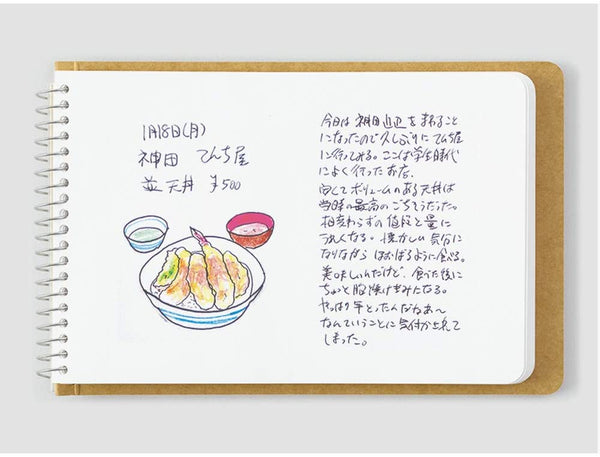 1月18日(月)
神田 てんち屋
並 天丼 ¥500
今日は 神田辺を まわること
になったので久しぶりに てんち屋
に行ってみる。ここは学生時代
によく行ったお店。
してボリュームのある天丼は
当時の最高のごちそうだった。
相変わらずの値段と量に
うれしくなる。懐かしい気分に
なりながら ほおばるように食べる。
美味しいんだけど、食べた後に
ちょっと胸焼けぎみになる。
やっぱり年とったんだなぁ〜
なんていうことに気付かされて
しまった。